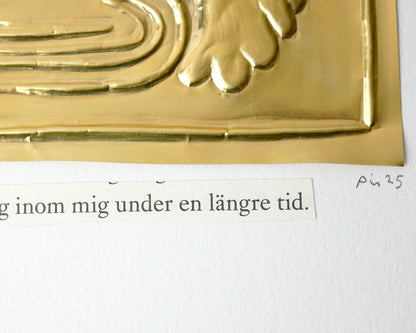 g inom mig under en längre tid.